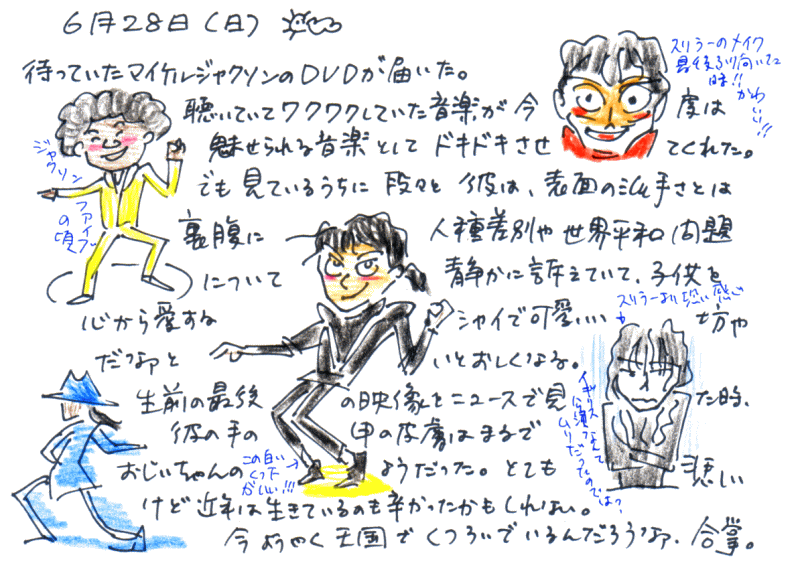 6月28日(日)
待っていたマイケルジャクソンのDVDが届いた。
聴いていてワクワクしていた音楽が今度は
魅せられる音楽としてドキドキさせてくれた。
でも見ているうちに段々と彼は、表面の派手さとは
裏腹に人種差別や世界平和問題
について静かに訴えていて、子供を
心から愛するシャイで可愛いい坊や
だなぁといとおしくなる。
生前の最後の映像をニュースで見た時、
彼の手の甲の皮膚はまるで
おじいちゃんのようだった。とても悲しい
けど近年は生きているのも辛かったかもしれない。
今ようやく天国でくつろいでいるんだろうなァ、合掌。
スリラーのメイク
最後ふり向いた
時!!
かわいい!!
ジャクソン
ファイブ
の頃
スリラーより恐い感じ
イギリス
公演なんて
ムリだったのでは?
この白い
くつ下
がいい!!!